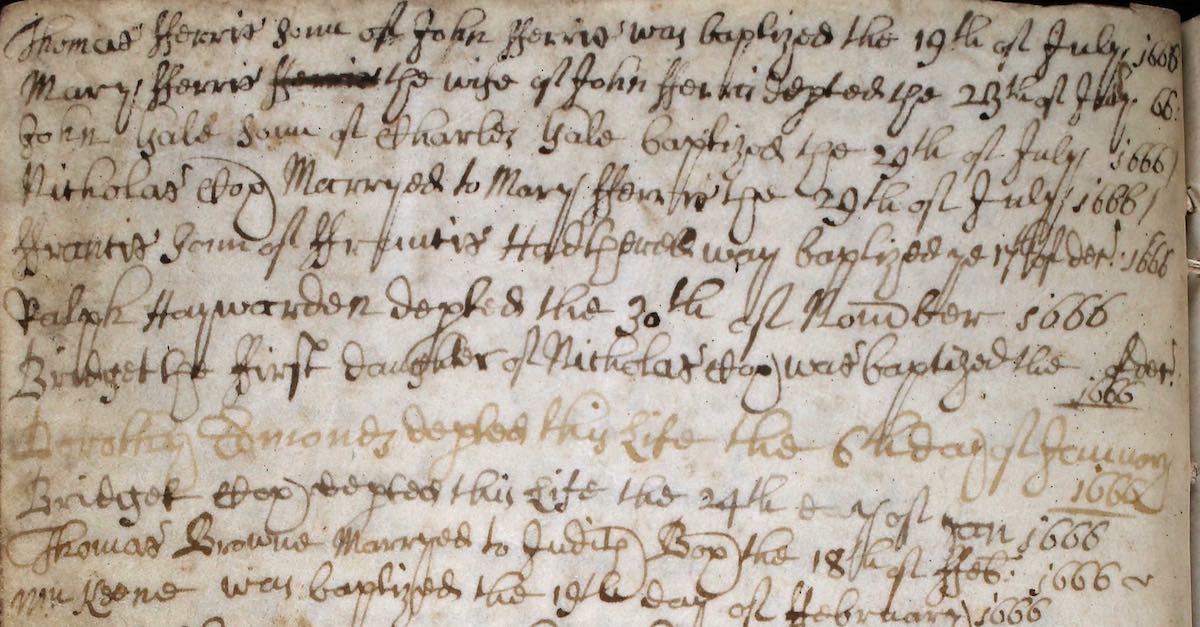 Thomas fferris sonn of John fferris was baptized the 19th of July 1666
Mary fferris the wife of John fferris depted the 23th of July 66
John Hale sonn of Charles Hale baptized the 29th of July 1666
Nicholas Cop Marryed to Mary fferris the 29th of July 1666
ffrancis sonn of ffrancis was baptized ye of dec: 1666
Ralph Haywarden depted the 30th of Nouēber 1666
Bridget the first daughter of Nicholas Cop was baptized the of dec:
1666
Dorothy Edmonds depted this Life the 6th day of January
1666
Bridget Cop depted this Life the 24th of Jan 1666
Thomas Browne Marryed to Judith the 18th of ffeb: 1666
Wm Keene was baptized the 19th day of ffebruary 1666